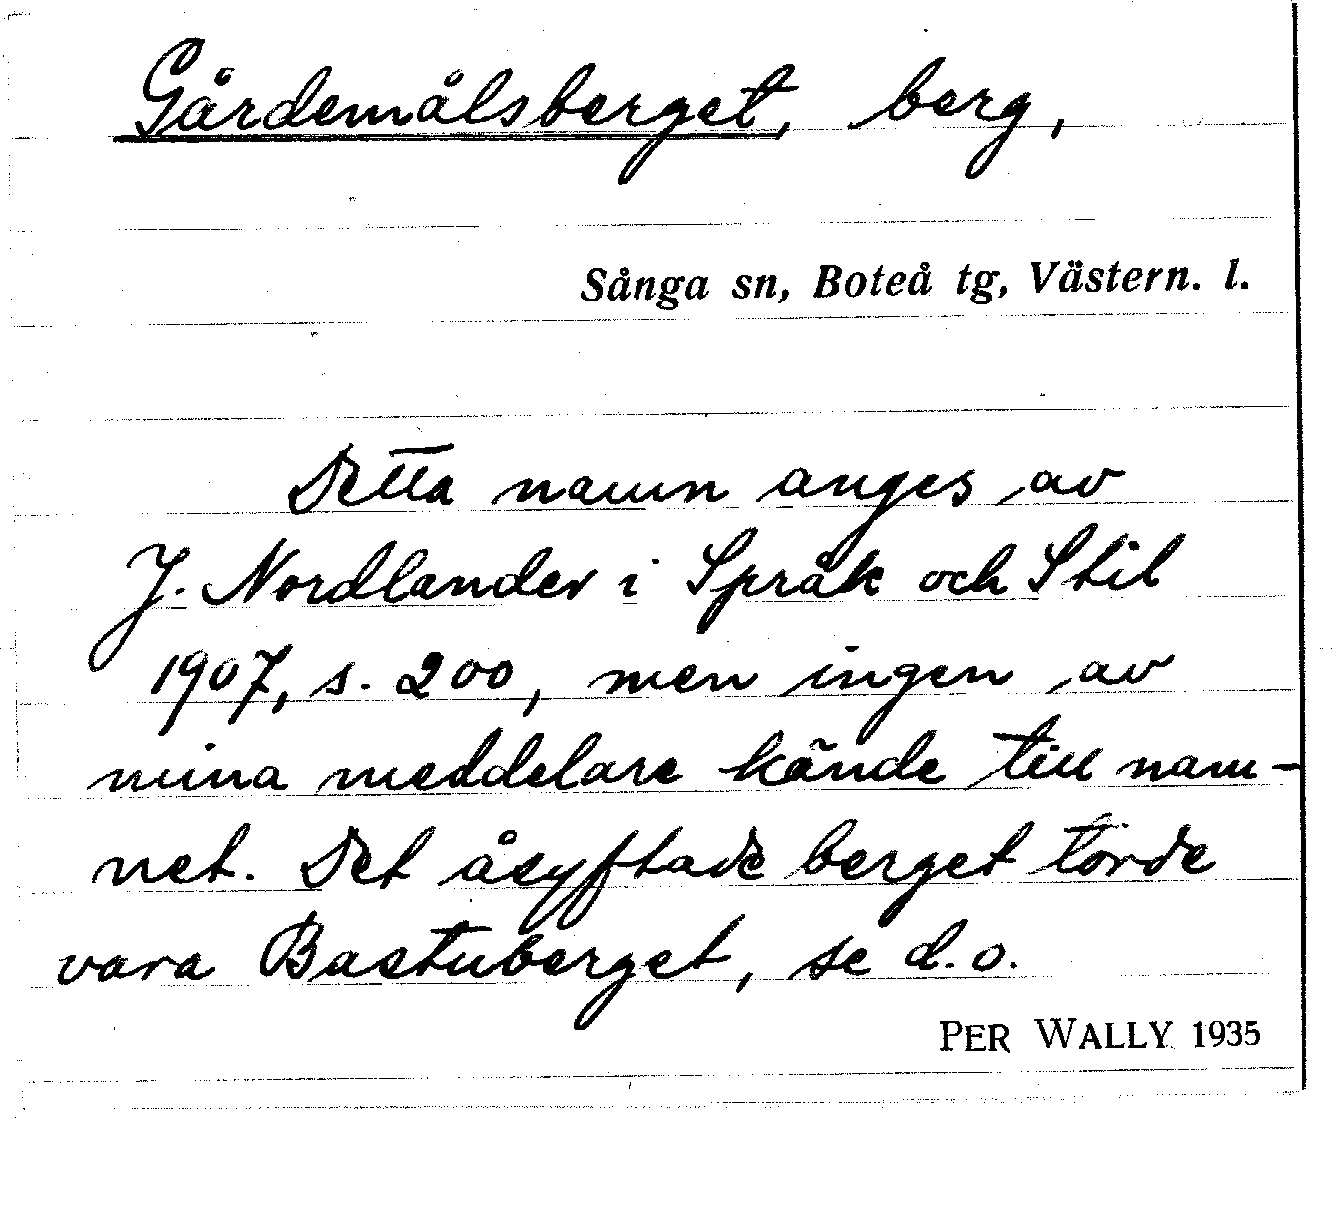 Gårdemålsberget, berg,
Sånga sn, Boteå tg, Västern. l.
Detta namn anges av
J. Nordlander i Språk och Stil
1907, s. 200, men ingen av
mina meddelare kände till nam-
net. Det åsyftade berget torde
vara Bastuberget, se d.o.
PER WALLY 1935